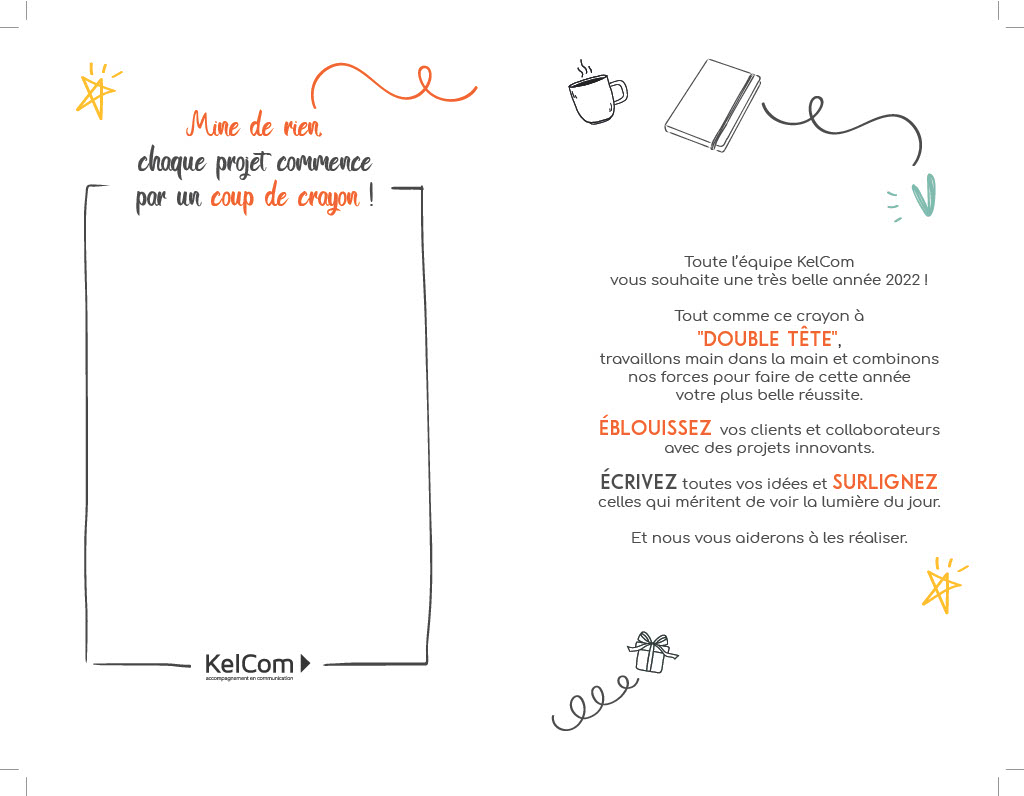 Mine de rien,
chaque projet commence
par un coup de crayon !
KelCom
accompagnement en communication
Toute l'équipe KelCom
vous souhaite une très belle année 2022 !
Tout comme ce crayon à
"DOUBLE TÊTE",
travaillons main dans la main et combinons
nos forces pour faire de cette année
votre plus belle réussite.
ÉBLOUISSEZ vos clients et collaborateurs
avec des projets innovants.
ÉCRIVEZ toutes vos idées et SURLIGNEZ
celles qui méritent de voir la lumière du jour.
Et nous vous aiderons à les réaliser.